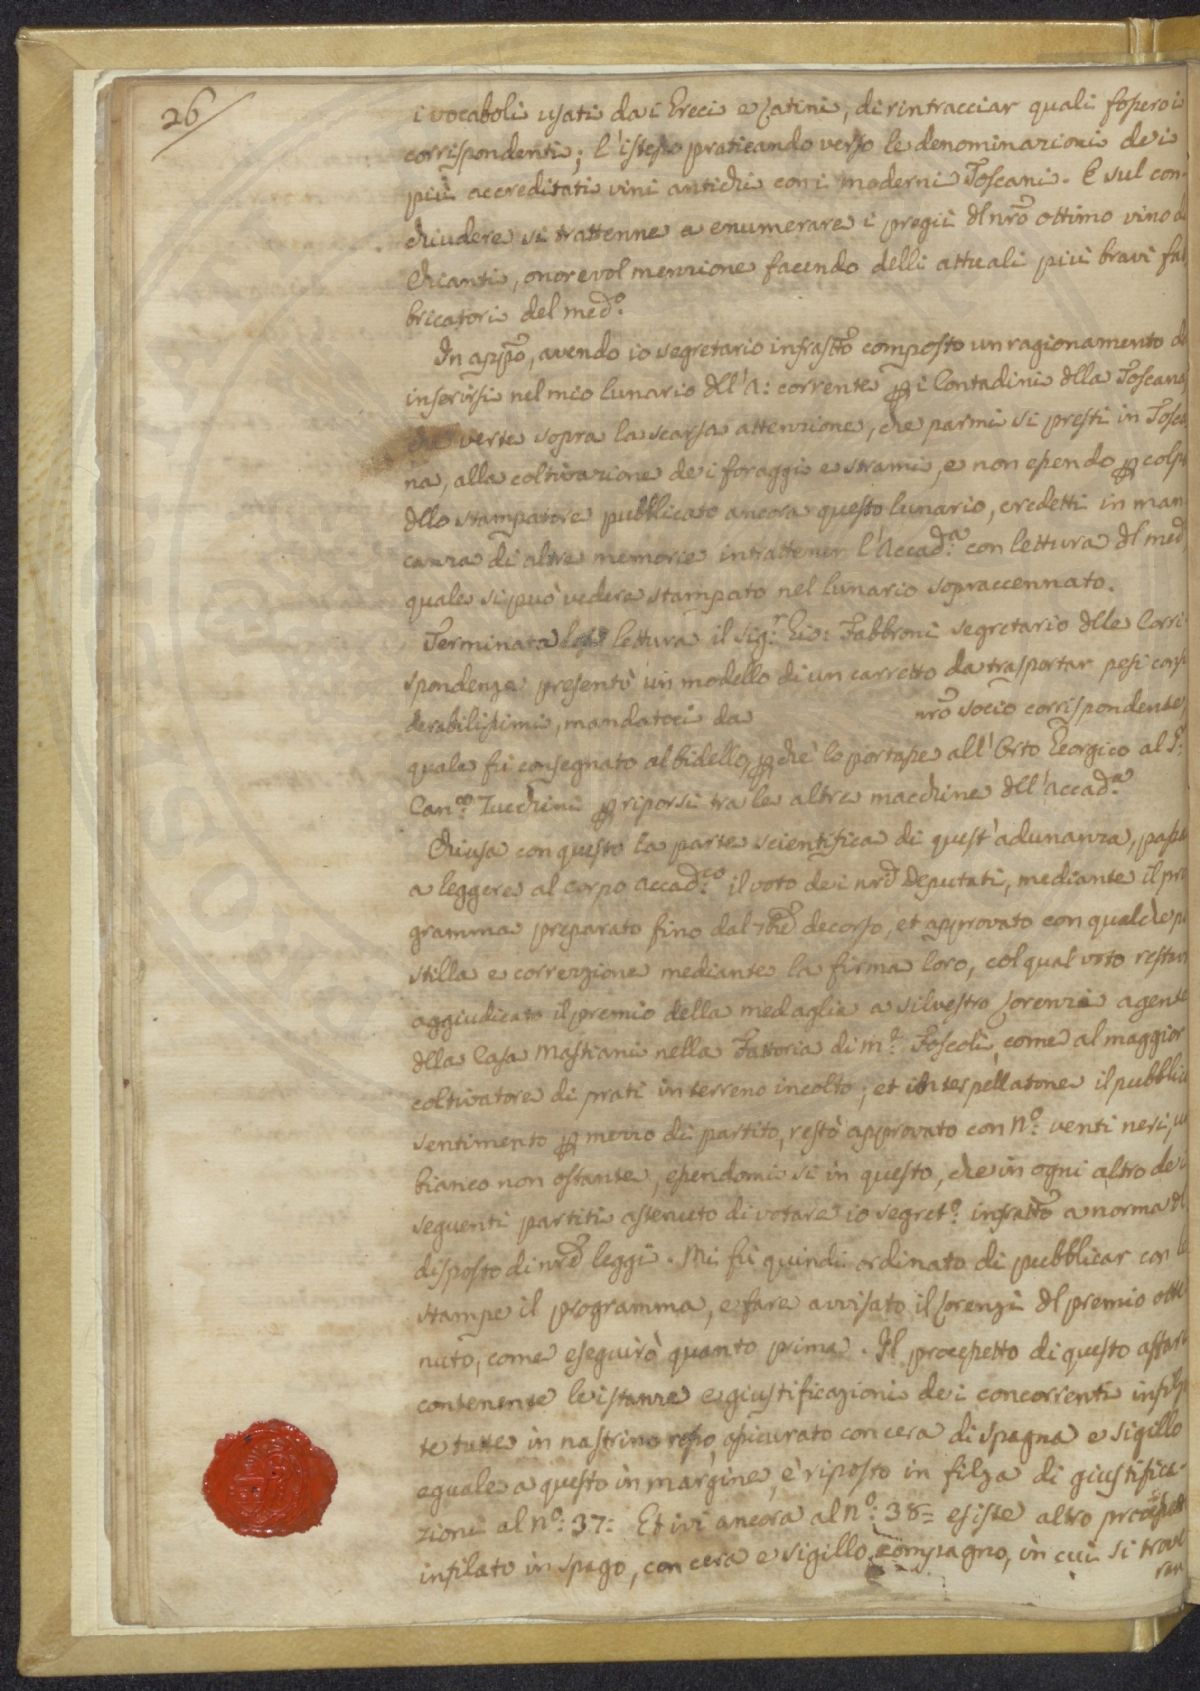 26
i vocaboli usati da i Greci e Latini, di rintracciar quali fossero i
corrispondenti; l'istesso praticando verso le denominazioni de i
più accreditati vini antichi con i moderni Toscani. E sul con-
chiudere si trattenne a enumerare i pregii dl nrõ ottimo vino d
Chianti, onorevol menzione facendo delli attuali più bravi fab
bricatori del med.º
In app̃o, avendo io segretario infrascr̃to composto un ragionamento d
inserirsi nel mio lunario dll'A: corrente p i Contadini dlla Toscana,
che verte sopra la scarsa attenzione, che parmi si presti in Tosca
na, alla coltivazione de i foraggi e strami, e non essendo p colpa
dllo stampatore pubblicato ancora questo lunario, credetti in man
canza di altre memorie intrattener l'Accad.ª con lettura dl med
quale si può vedere stampato nel lunario sopraccennato.
Terminata lettura il Sig.r Gio: Fabbroni segretario dlle Corri
spondenze presentò un modello di un carretto da trasportar pesi consi
derabilissimi, mandatoci da nrõ socio corrispondente,
quale fù consegnato al bidello, p chè lo portasse all'Orto Georgico al S.r
Can.co Zucchini p riporsi tra le altre macchine dll'Accad.ª
Chiusa con questo la parte scientifica di quest'adunanza, passai
a leggere al corpo Accad.co il voto de i nrĩ Deputati, mediante il pro
gramma preparato fino dal 7brẽ decorso, et approvato con qualche po
stilla e correzzione mediante la firma loro, col qual voto restav
aggiudicato il premio della medaglia a Silvestro Lorenzi agente
dlla Casa Mastiani nella Fattoria di m.e Foscoli, come al maggior
coltivatore di prati in terreno incolto; et intespellatone il pubblico
sentimento p mezzo di partito, restò approvato con Nº: venti neri, un
bianco non ostante, essendomi si in questo, che in ogni altro de i
seguenti partiti astenuto di votare io segret.º infrascr̃to a norma dl
disposto di nrẽ leggi. Mi fù quindi ordinato di pubblicar con le
stampe il programma, e fare avvisato il Lorenzi dl premio otte
nuto, come eseguirò quanto prima. Il processetto di questo affare
contenente le istanze e giustificazioni de i concorrenti infilza
te tutte in nastrino rosso, assicurato con cera di Spagna e sigillo
eguale a questo in margine, è riposto in filza di giustifica-
zioni al nº: 37: Et ivi ancora al nº: 38= esiste altro processetto
infilato in spago, con cera e sigillo compagno, in cui si trove
ran